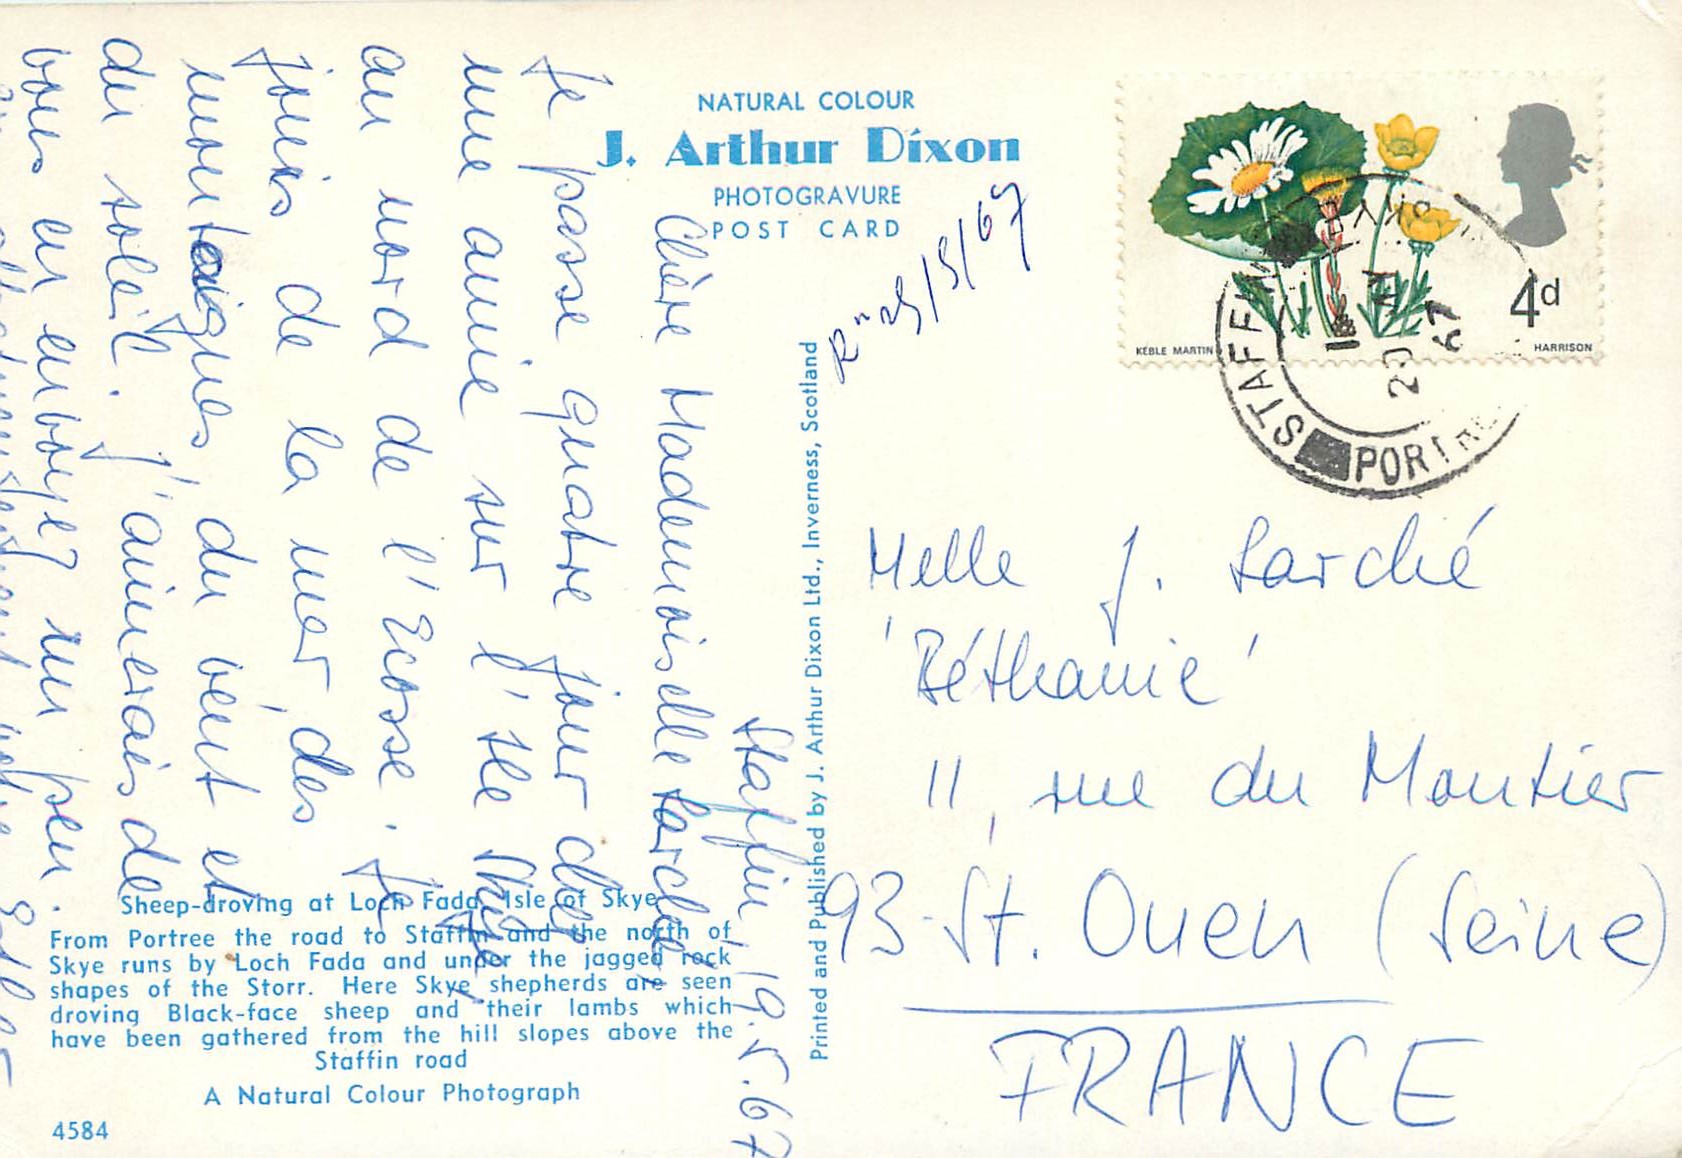 NATURAL COLOUR
J. Arthur Dixon
PHOTOGRAVURE
POST CARD
Staffin, 19.5.67
Chère Mademoiselle Larché,
Je passe quatre jour chez
une amie sur l'île Skye,
au nord de l'Ecosse. Je
jouis de la mer, des
montagnes, du vent et
du soleil. J'aimerais de
vous en envoyer un peu.
Sheep-droving at Loch Fada, Isle of Skye
From Portree the road to Staffin and the north of
Skye runs by Loch Fada and under the jagged rock
shapes of the Storr. Here Skye shepherds are seen
droving Black-face sheep and their lambs which
have been gathered from the hill slopes above the
Staffin road
A Natural Colour Photograph
4584
Printed and Published by J. Arthur Dixon Ltd., Inverness, Scotland
/5/67
KEBLE MARTIN
HARRISON
4d
STAFFIN
SKYE
67
Melle J. Larché
'Béthanie'
11, rue du Montier
93 St. Ouen (Seine)
FRANCE